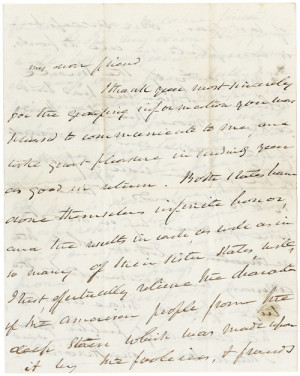 my dear friend
I thank you most sincerely
for the gratifying information you was
pleased to communicate to me, and
take great pleasure in sending you
as good in return. Both states have
done themselves infinite honor,
and the results in each, as well as in
so many of their sister states will,
I trust effectually relieve the character
of the american people from the
deep stain which was made upon
it by the fooleries, & frauds